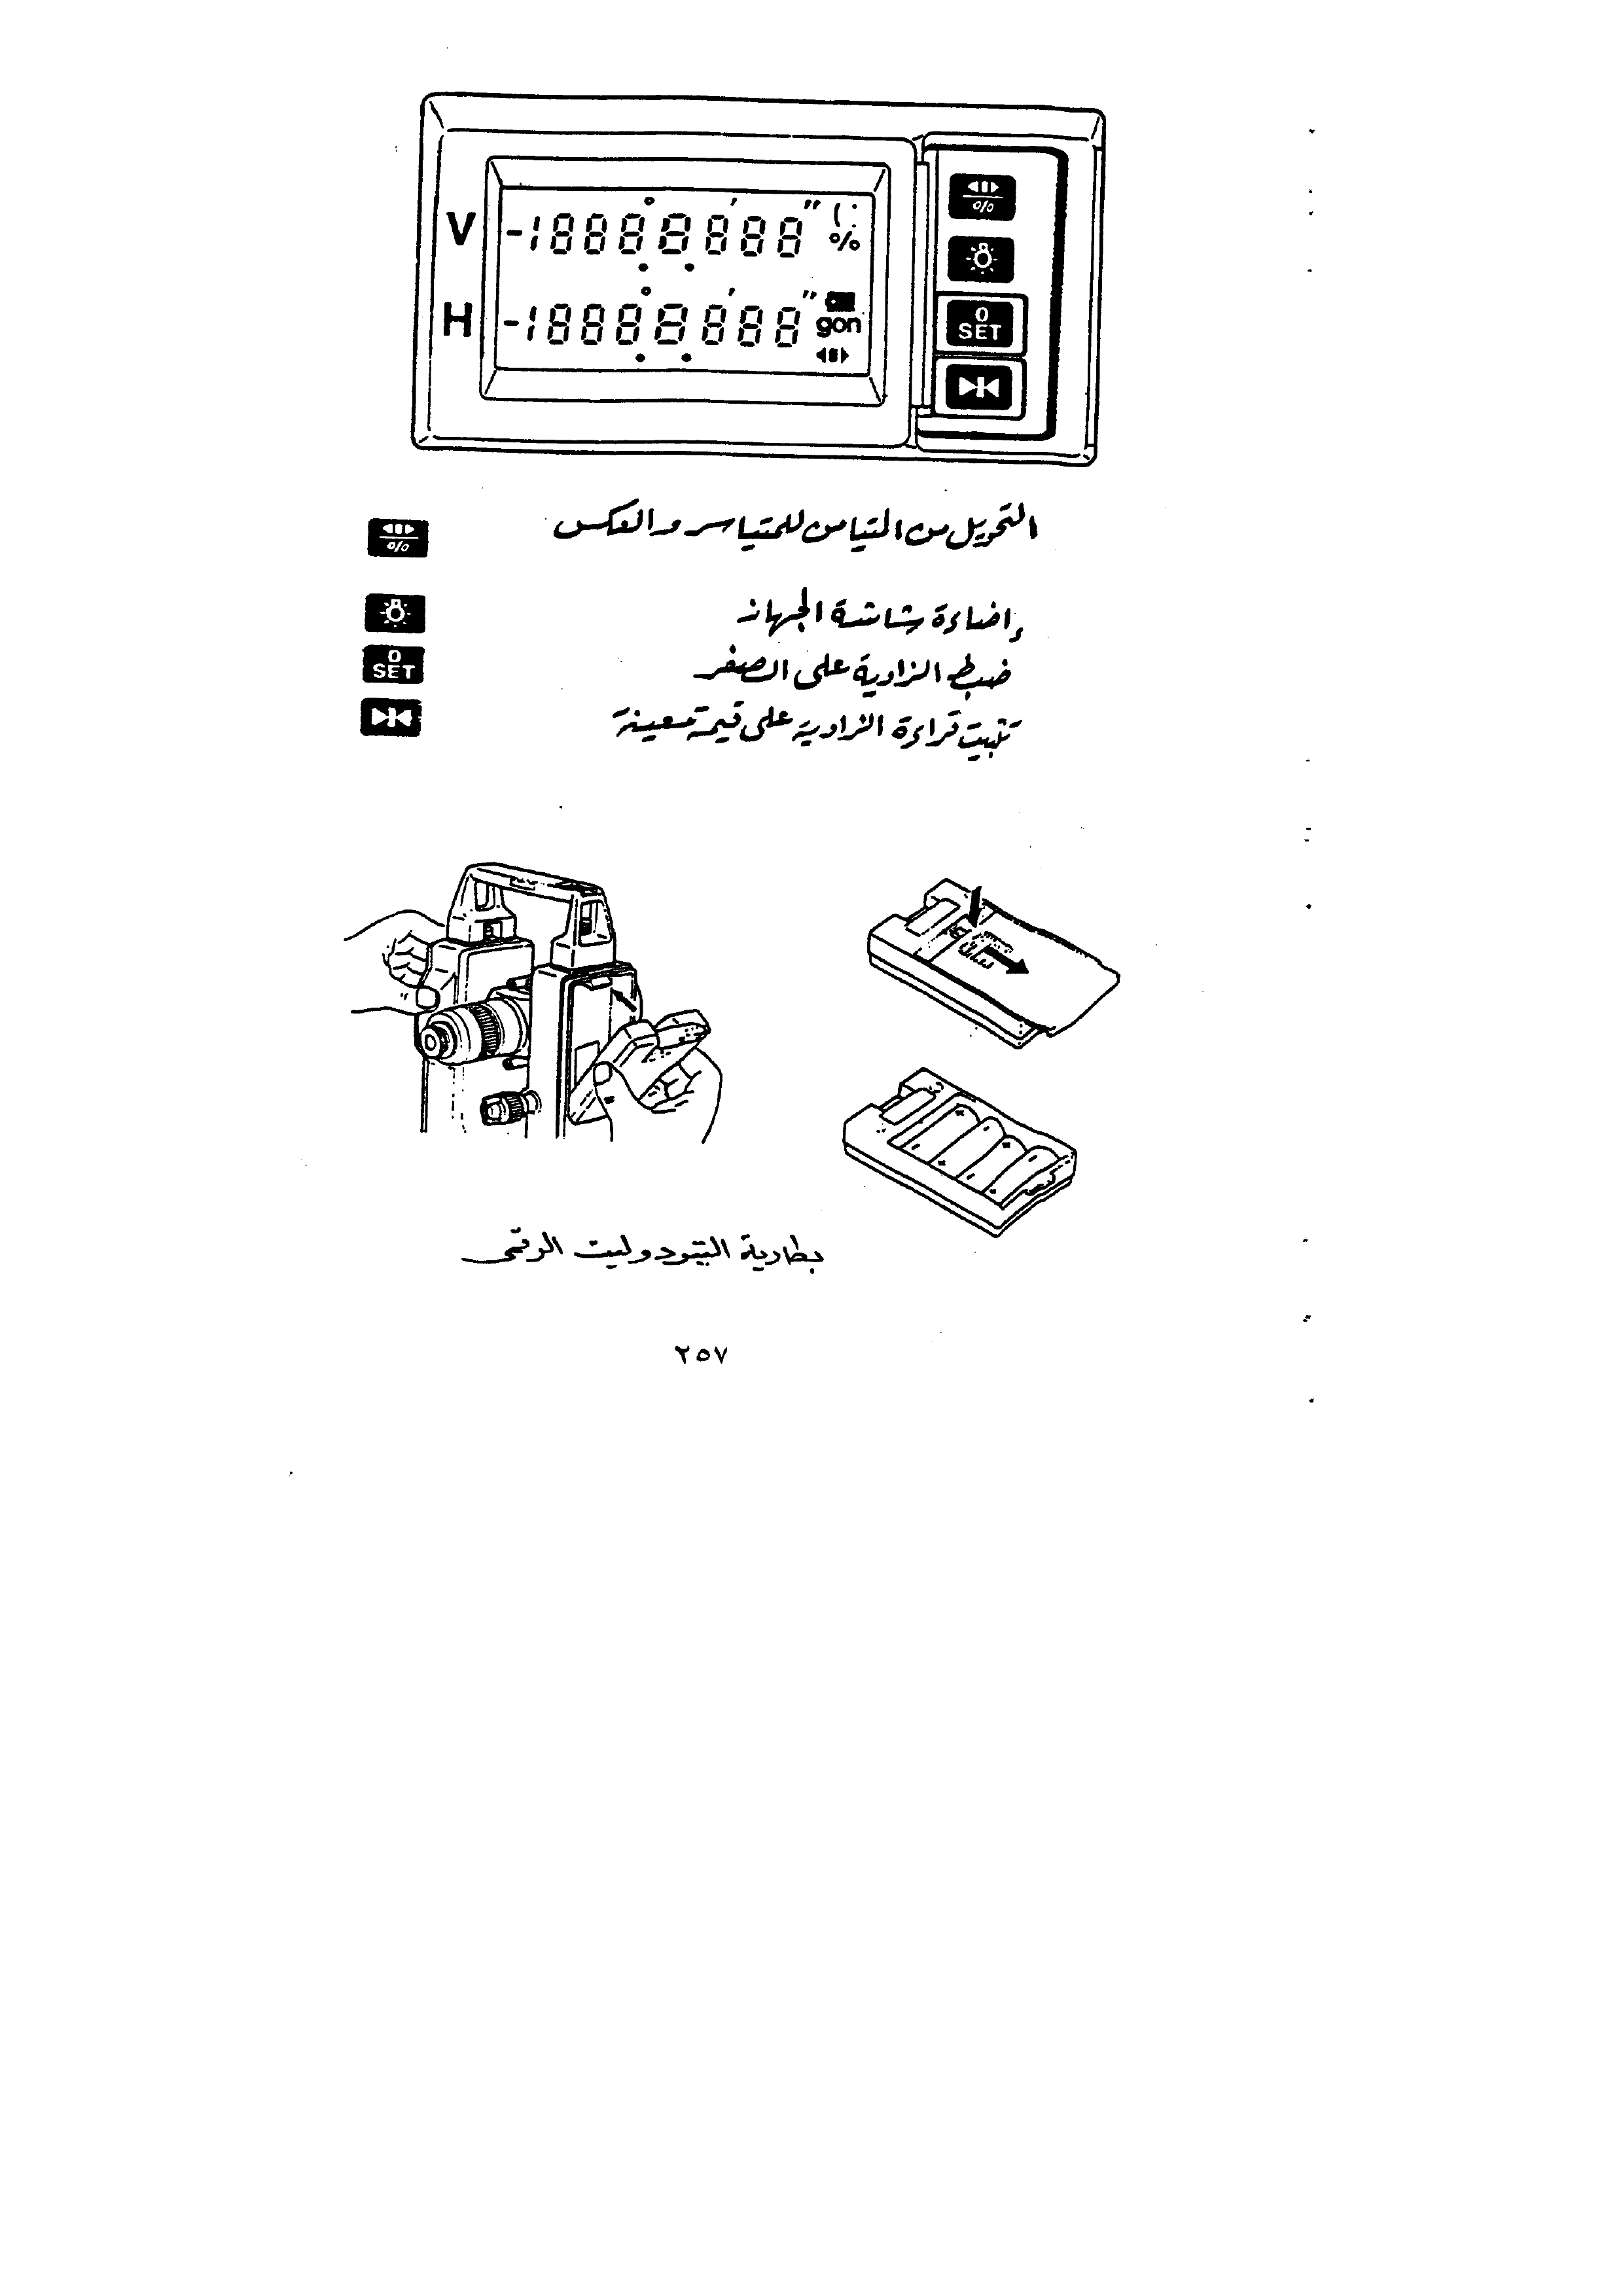 V -1888°8'888" %
H -1888°8'888" gon
◀▮▶ %
0 SET
التحويل من المتيامن للمتياسر والعكس
◀▮▶ %
إضاءة شاشة الجهاز
ضبط الزاوية على الصفر
0 SET
تثبيت قراءة الزاوية على قيمة معينة
بطارية التيودوليت الرقمى
٢٥٧